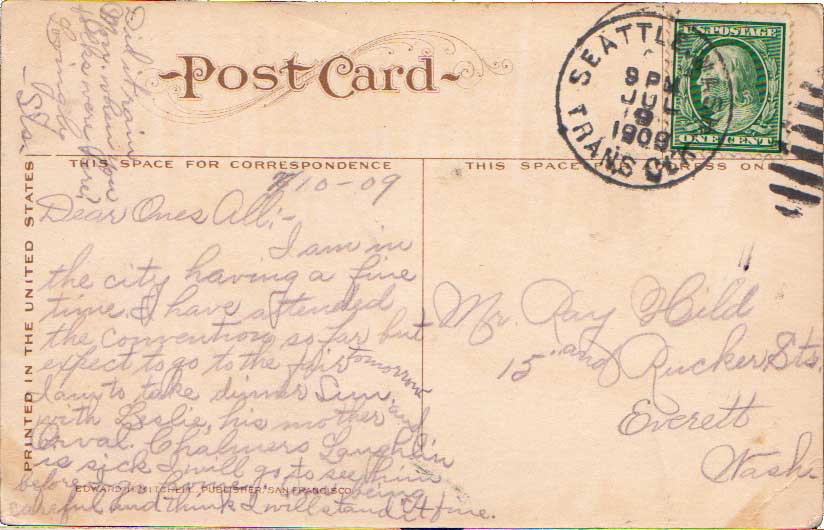 Post Card
SEATTLE WASH.
9 PM
JUL
9
1909
TRANS CLK
U.S. POSTAGE
ONE CENT
Did it rain
when you
were here?
Lovingly
THIS SPACE FOR CORRESPONDENCE
THIS SPACE ADDRESS ON
PRINTED IN THE UNITED STATES
7/10-09
Dear Ones All:-
I am in
the city having a fine
time. I have attended
the convention so far but
expect to go to the fair tomorrow
I am to take dinner Sun.
with Leslie, his mother and
Orval. Chalmers Laughlin
is sick I will go to see him
before I go home. I am being
careful and think I will stand it fine.
EDWARD H. MITCHELL, PUBLISHER, SAN FRANCISCO
Mr. Ray Hild
15" and Rucker Sts.
Everett
Wash-